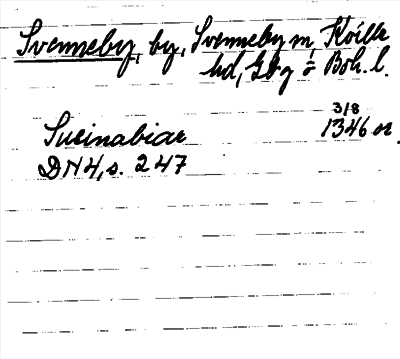 Svenneby, by, Svenneby sn, Kville
hd, Gbg o Boh. l.
3/8
Sueinabiae 1346 or.
DN 4, s. 247